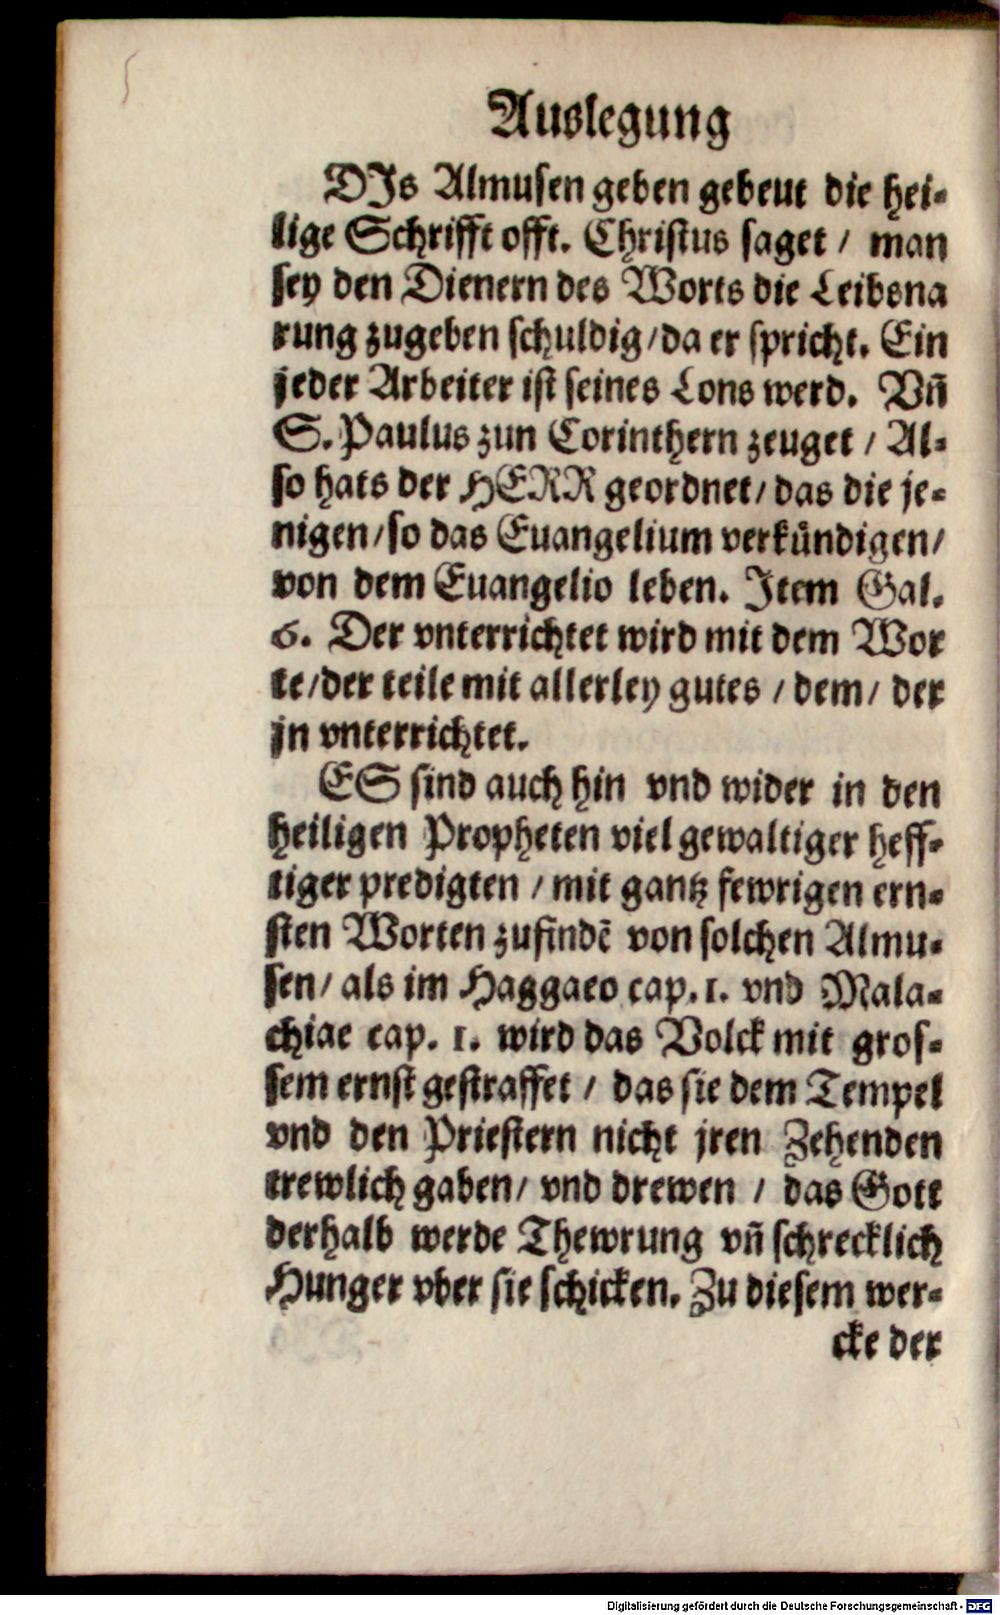 Auslegung
DJs Almusen geben gebeut die hei-
lige Schrifft offt. Christus saget / man
sey den Dienern des Worts die Leibsna
rung zugeben schuldig / da er spricht. Ein
jeder Arbeiter ist seines Lons werd. Vñ
S. Paulus zun Corinthern zeuget / Al-
so hats der HERR geordnet / das die je-
nigen / so das Euangelium verkündigen /
von dem Euangelio leben. Jtem Gal.
6. Der vnterrichtet wird mit dem Wor
te / der teile mit allerley gutes / dem / der
jn vnterrichtet.
ES sind auch hin vnd wider in den
heiligen Propheten viel gewaltiger heff-
tiger predigten / mit gantz fewrigen ern-
sten Worten zufindẽ von solchen Almu-
sen / als im Haggaeo cap. 1. vnd Mala-
chiae cap. 1. wird das Volck mit gros-
sem ernst gestraffet / das sie dem Tempel
vnd den Priestern nicht jren Zehenden
trewlich gaben / vnd drewen / das Gott
derhalb werde Thewrung vñ schrecklich
Hunger vber sie schicken. Zu diesem wer-
cke der
Digitalisierung gefördert durch die Deutsche Forschungsgemeinschaft - DFG